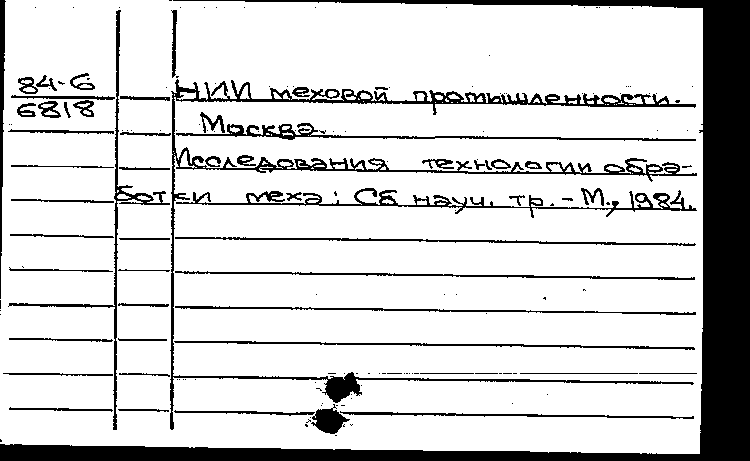 84-6
6818
НИИ меховой промышленности.
Москва.
Исследования технологии обра-
ботки меха: Сб науч. тр. - М., 1984.